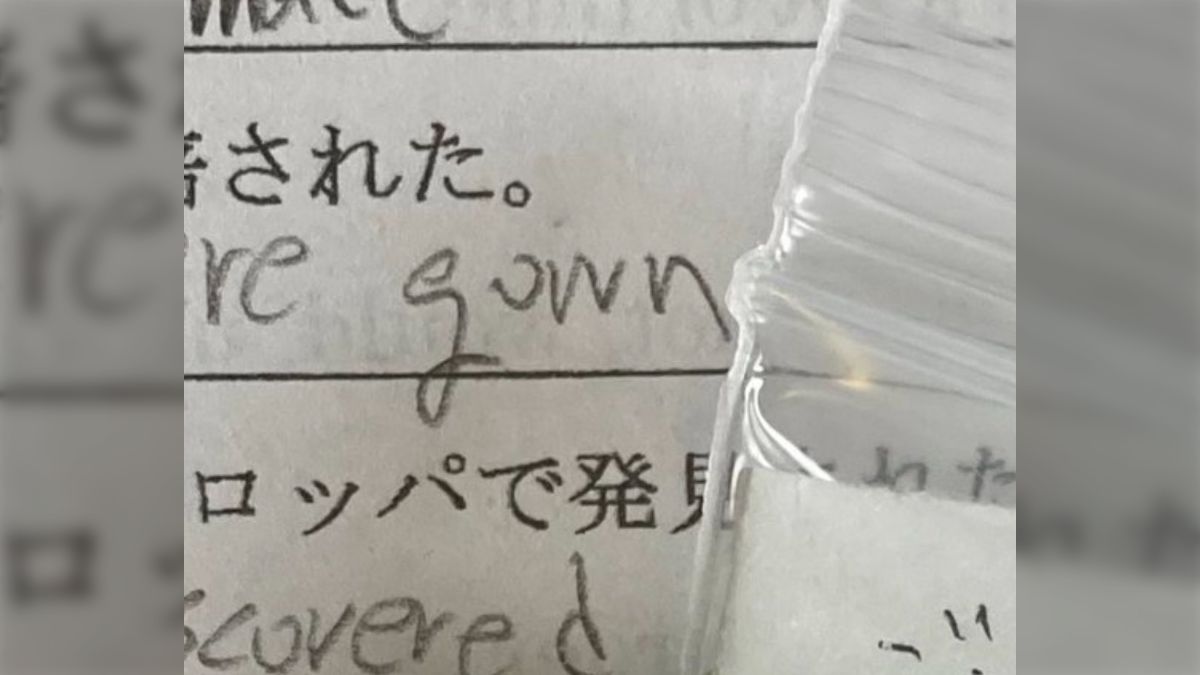 された。
re gown
ロッパで発見された
scovered